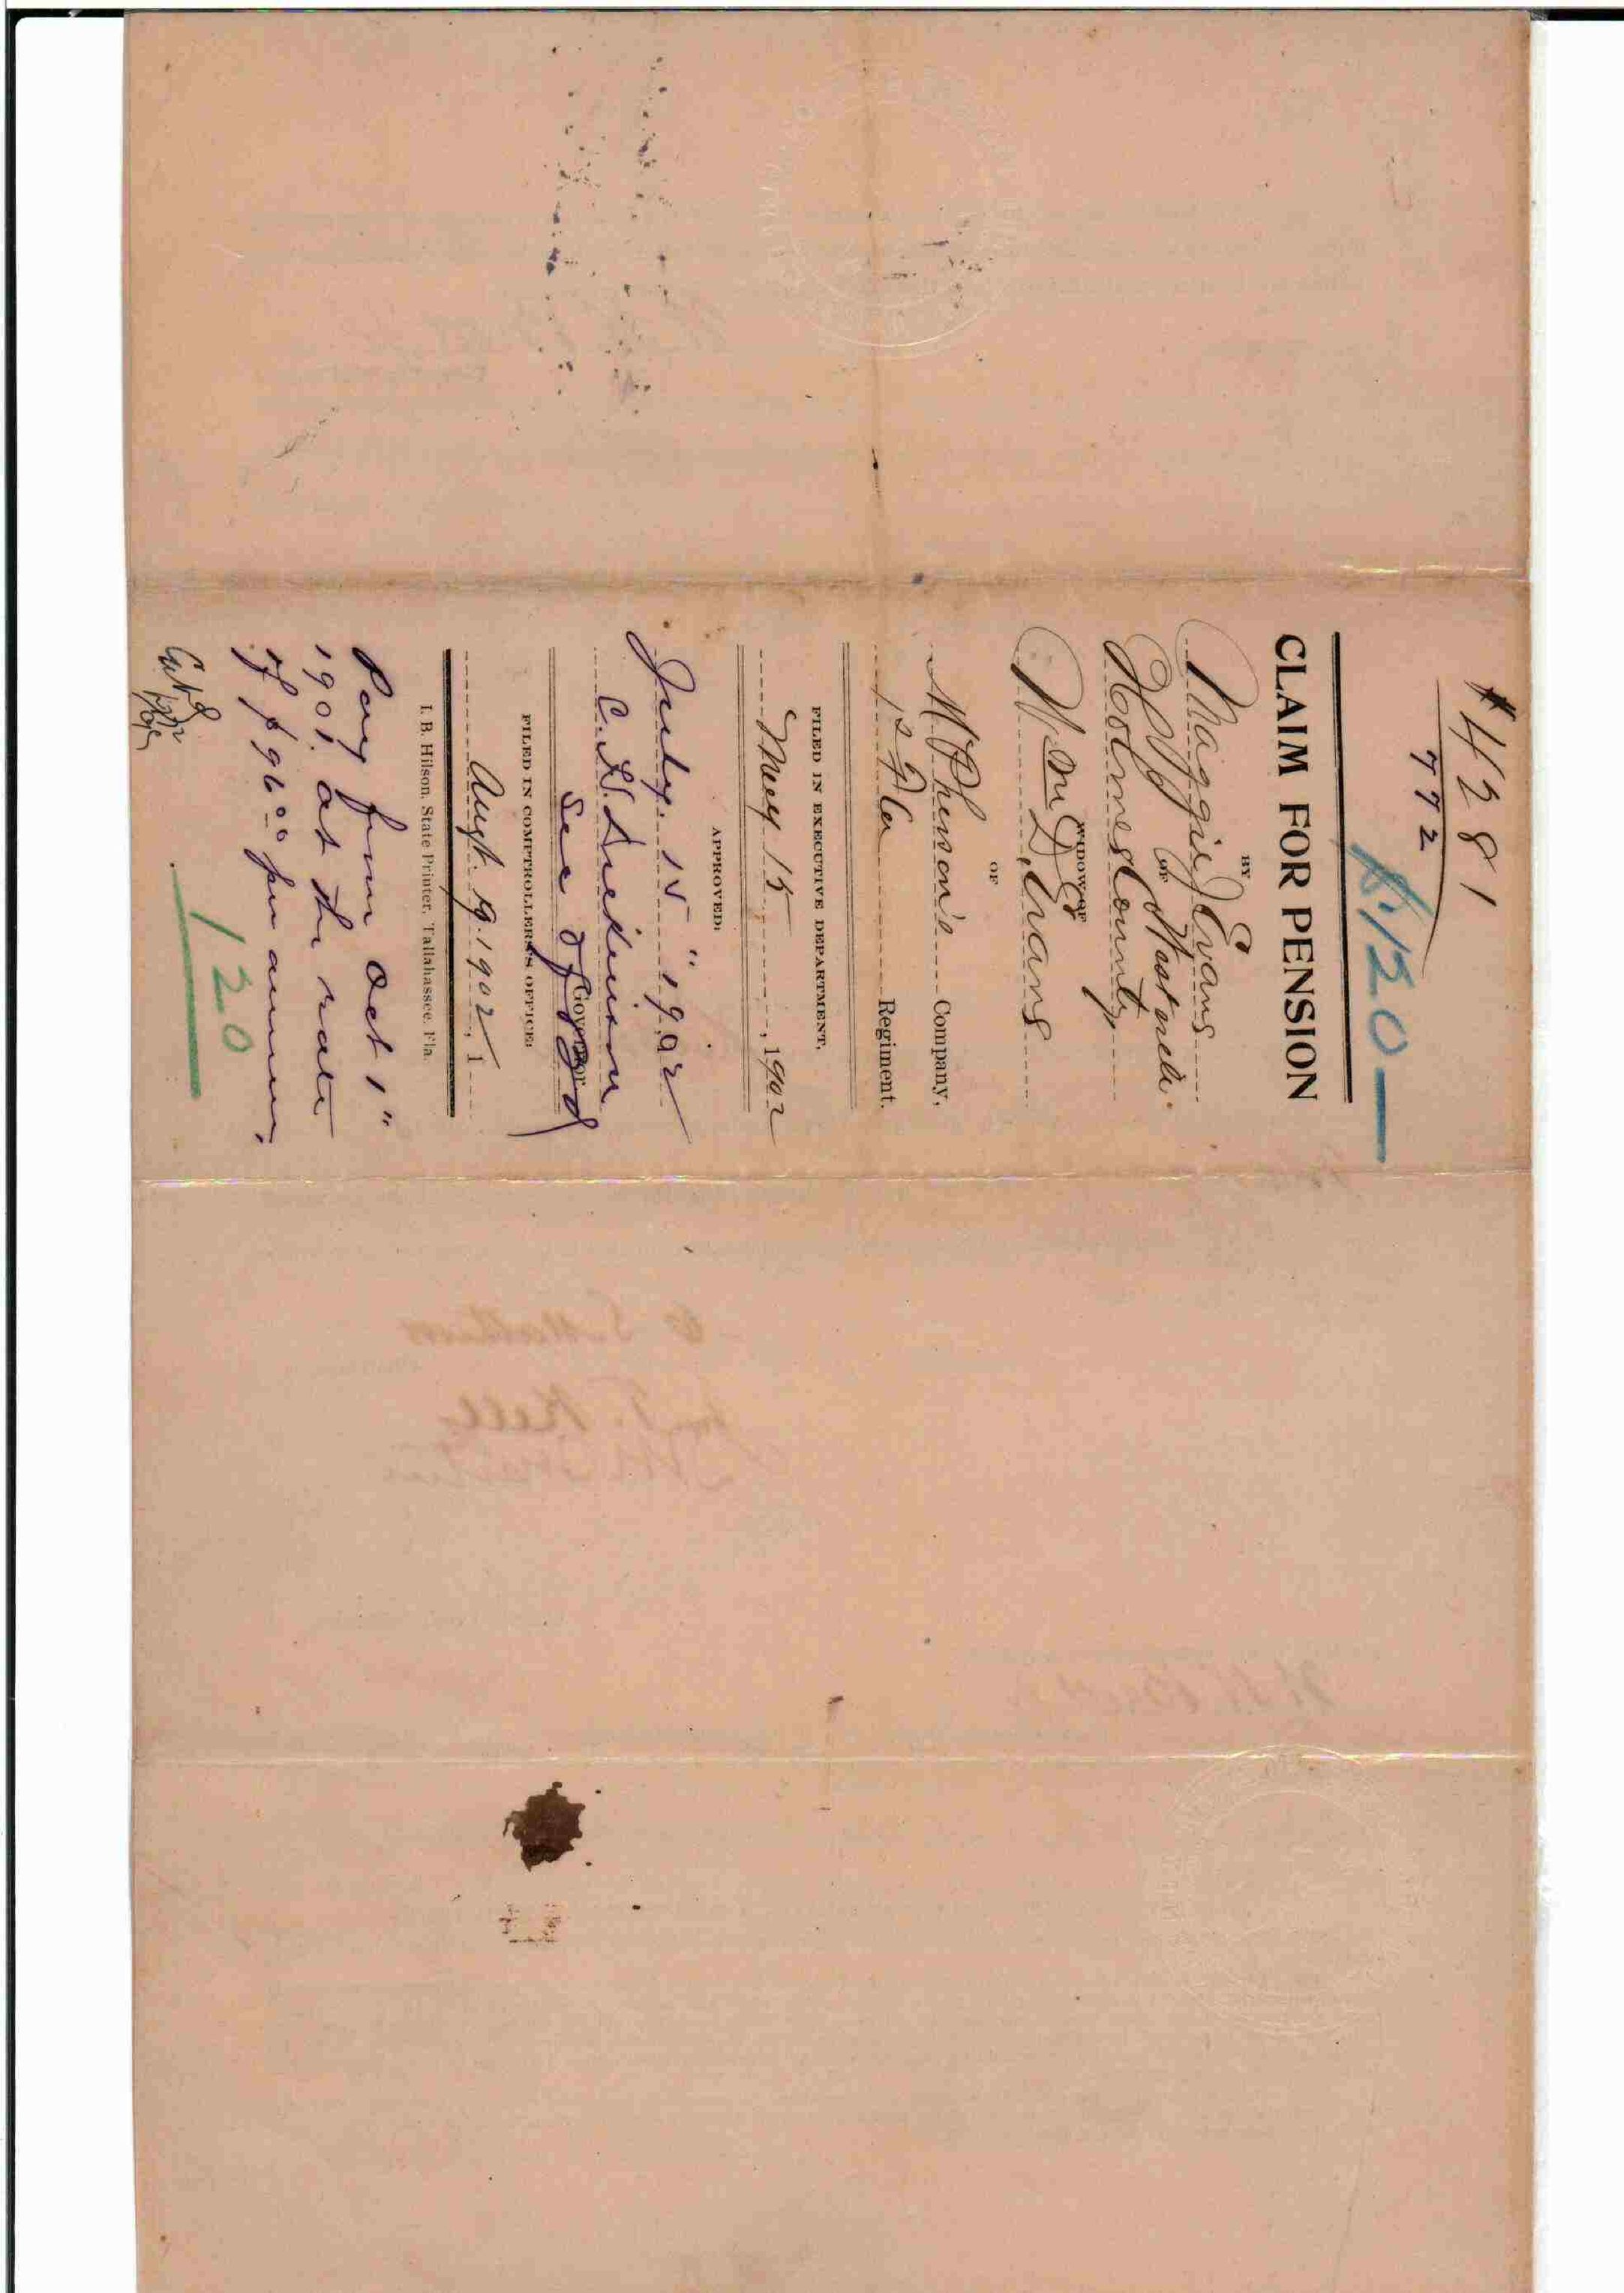 #4281
772
$120
CLAIM FOR PENSION
BY
Maggie J Evans
OF Westville
Holmes County
WIDOW OF
Wm D. Evans
OF
McPherson's Company,
1st Fla Regiment.
FILED IN EXECUTIVE DEPARTMENT,
May 15, 1902
APPROVED:
July 15" 1902
C. H. Dickinson
Sec of Bd
Governor
FILED IN COMPTROLLER'S OFFICE:
Augt. 19. 1902, 1
I. B. Hilson, State Printer, Tallahassee, Fla.
Pay from Oct 1"
1901. at the rate
of $96.00 per annum.
120